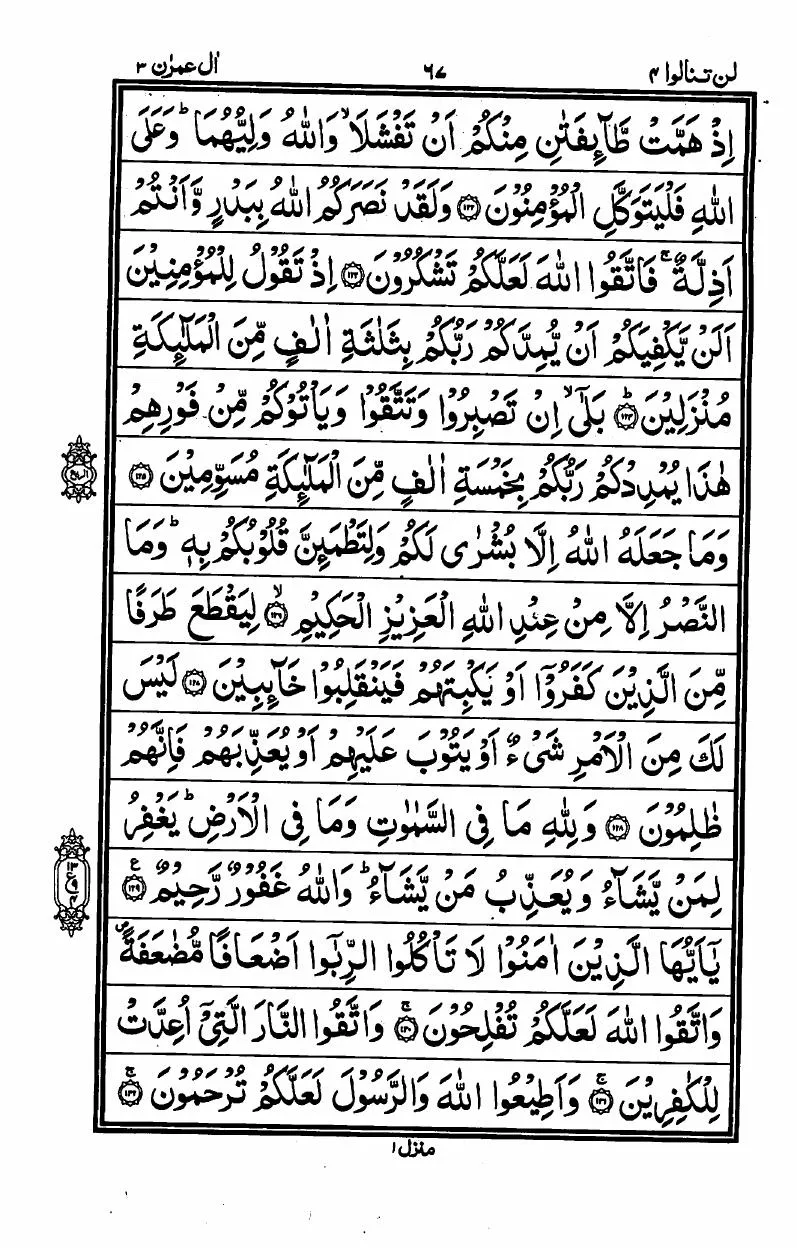 لن تنالوا ۴ ۶۷ اٰل عمرٰن ۳
اِذْ هَمَّتْ طَّآىِٕفَتٰنِ مِنْكُمْ اَنْ تَفْشَلَا ۙ وَاللّٰهُ وَلِیُّهُمَا ؕ وَعَلَی
اللّٰهِ فَلْیَتَوَكَّلِ الْمُؤْمِنُوْنَ ﴿۱۲۲﴾ وَلَقَدْ نَصَرَكُمُ اللّٰهُ بِبَدْرٍ وَّاَنْتُمْ
اَذِلَّةٌ ۚ فَاتَّقُوا اللّٰهَ لَعَلَّكُمْ تَشْكُرُوْنَ ﴿۱۲۳﴾ اِذْ تَقُوْلُ لِلْمُؤْمِنِیْنَ
اَلَنْ یَّكْفِیَكُمْ اَنْ یُّمِدَّكُمْ رَبُّكُمْ بِثَلٰثَةِ اٰلٰفٍ مِّنَ الْمَلٰٓىِٕكَةِ
مُنْزَلِیْنَ ﴿۱۲۴﴾ ؕ بَلٰۤی ۙ اِنْ تَصْبِرُوْا وَتَتَّقُوْا وَیَاْتُوْكُمْ مِّنْ فَوْرِهِمْ
هٰذَا یُمْدِدْكُمْ رَبُّكُمْ بِخَمْسَةِ اٰلٰفٍ مِّنَ الْمَلٰٓىِٕكَةِ مُسَوِّمِیْنَ ﴿۱۲۵﴾
وَمَا جَعَلَهُ اللّٰهُ اِلَّا بُشْرٰی لَكُمْ وَلِتَطْمَىِٕنَّ قُلُوْبُكُمْ بِهٖ ؕ وَمَا
النَّصْرُ اِلَّا مِنْ عِنْدِ اللّٰهِ الْعَزِیْزِ الْحَكِیْمِ ﴿۱۲۶﴾ ۙ لِیَقْطَعَ طَرَفًا
مِّنَ الَّذِیْنَ كَفَرُوْۤا اَوْ یَكْبِتَهُمْ فَیَنْقَلِبُوْا خَآىِٕبِیْنَ ﴿۱۲۷﴾ لَیْسَ
لَكَ مِنَ الْاَمْرِ شَیْءٌ اَوْ یَتُوْبَ عَلَیْهِمْ اَوْ یُعَذِّبَهُمْ فَاِنَّهُمْ
ظٰلِمُوْنَ ﴿۱۲۸﴾ وَلِلّٰهِ مَا فِی السَّمٰوٰتِ وَمَا فِی الْاَرْضِ ؕ یَغْفِرُ
لِمَنْ یَّشَآءُ وَیُعَذِّبُ مَنْ یَّشَآءُ ؕ وَاللّٰهُ غَفُوْرٌ رَّحِیْمٌ ﴿۱۲۹﴾ ع
یٰۤاَیُّهَا الَّذِیْنَ اٰمَنُوْا لَا تَاْكُلُوا الرِّبٰۤوا اَضْعَافًا مُّضٰعَفَةً ۪
وَاتَّقُوا اللّٰهَ لَعَلَّكُمْ تُفْلِحُوْنَ ﴿۱۳۰﴾ ۚ وَاتَّقُوا النَّارَ الَّتِیْۤ اُعِدَّتْ
لِلْكٰفِرِیْنَ ﴿۱۳۱﴾ ۚ وَاَطِیْعُوا اللّٰهَ وَالرَّسُوْلَ لَعَلَّكُمْ تُرْحَمُوْنَ ﴿۱۳۲﴾ ۚ
منزل ۱